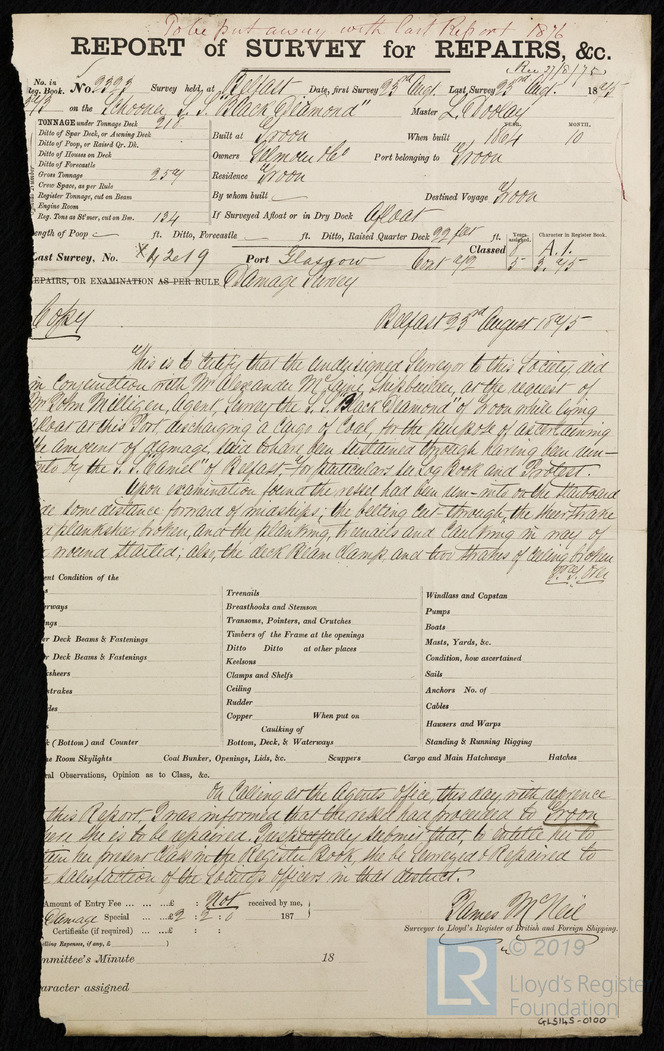 To be put away with last Report 1876
REPORT of SURVEY for REPAIRS, &c.
Rec 27/8/75
No. in Reg. Book. No. 2323 Survey held at Belfast Date, first Survey 23rd Augt. Last Survey 23rd Augt. 1875
343 on the Schooner S.S. "Black Diamond" Master L. Dooley
TONNAGE under Tonnage Deck 210
Ditto of Spar Deck, or Awning Deck
Ditto of Poop, or Raised Qr. Dk.
Ditto of Houses on Deck
Ditto of Forecastle
Gross Tonnage 257
Crew Space, as per Rule
Register Tonnage, cut on Beam
Engine Room
Reg. Tons as St'mer, cut on Bm. 134
Built at Troon When built YEAR. 1864 MONTH. 10
Owners Gilmour & Co Port belonging to Troon
Residence Troon
By whom built Destined Voyage Troon
If Surveyed Afloat or in Dry Dock Afloat
ength of Poop ft. Ditto, Forecastle ft. Ditto, Raised Quarter Deck 22 ft. Years assigned. Character in Register Book.
Last Survey, No. 4219 Port Glasgow Classed 8 A.1.
5 3.75
EPAIRS, OR EXAMINATION AS PER RULE Damage Survey
Copy Belfast 23rd August 1875
This is to certify that the undersigned Surveyor to this Society, did
in conjunction with Mr Alexander McLaine, Shipbuilder, at the request of
Mr John Milligen, Agent, Survey the S.S. "Black Diamond" of Troon while lying
afloat at this Port discharging a cargo of Coal, for the purpose of ascertaining
the amount of damage, said to have been sustained through having been run-
into by the S.S. Daniel" of Belfast - for particulars see Log Book and Protest.
Upon examination found the vessel had been run-into on the Starboard
ide some distance forward of midships; the belting cut-through, the sheerstrake
d planksheer broken, and the planking, treenails and caulking in way of
wound started; also, the deck beam clamp, and two strakes of ceiling broken
P.T. Over
ent Condition of the
s
erways
ngs
er Deck Beams & Fastenings
er Deck Beams & Fastenings
ksheers
strakes
des
k (Bottom) and Counter
Treenails
Breasthooks and Stemson
Transoms, Pointers, and Crutches
Timbers of the Frame at the openings
Ditto Ditto at other places
Keelsons
Clamps and Shelfs
Ceiling
Rudder
Copper When put on
Caulking of
Bottom, Deck, & Waterways
Windlass and Capstan
Pumps
Boats
Masts, Yards, &c.
Condition, how ascertained
Sails
Anchors No. of
Cables
Hawsers and Warps
Standing & Running Rigging
ne Room Skylights Coal Bunker, Openings, Lids, &c. Scuppers Cargo and Main Hatchways Hatches
ral Observations, Opinion as to Class, &c.
On calling at the Agents office, this day with reference
this Report, I was informed that the vessel had proceeded to Troon
here she is to be repaired. I respectfully submit that to entitle her to
tain her present class in the Register Book, she be Surveyed & Repaired to
satisfaction of the Society's officers in that district.
Amount of Entry Fee ... ... £ Not received by me,
Damage Special ... £2 : 2 : 0 187
Certificate (if required) ... ... £ : :
elling Expenses, if any, £
James McNeil
Surveyor to Lloyd's Register of British and Foreign Shipping.
mmittee's Minute 18
aracter assigned
LR
© 2019
Lloyd's Register
Foundation
GLS145-0100